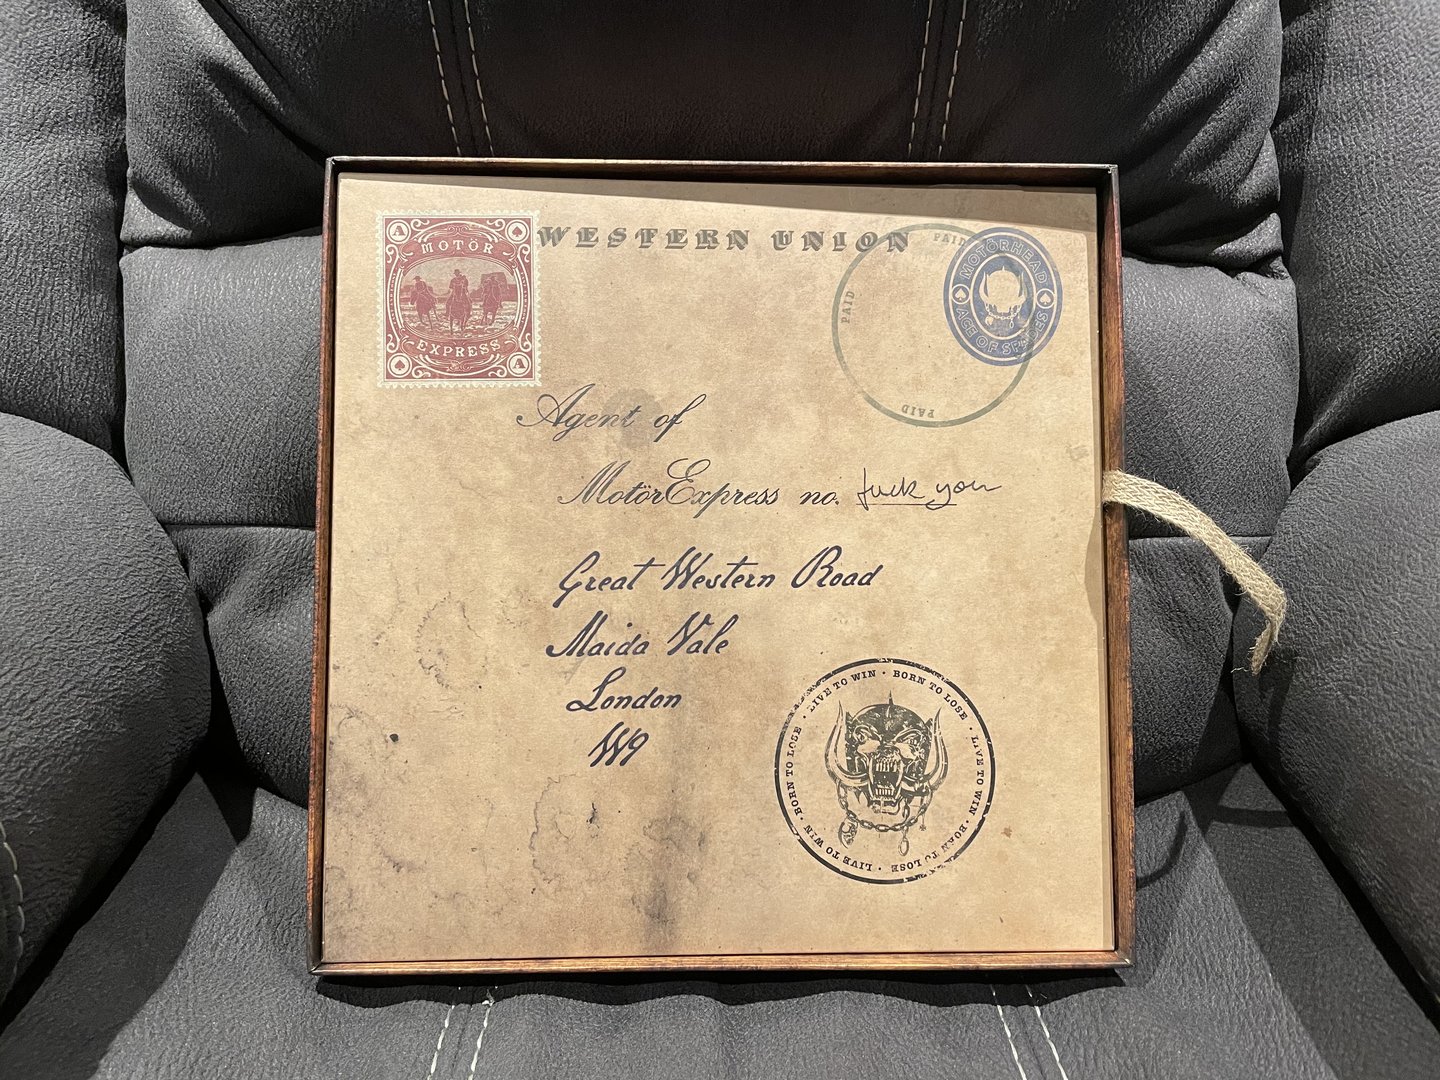 WESTERN UNION
A
A
MOTÖR
EXPRESS
PAID
PAID
PAID
MOTÖRHEAD
ACE OF SP
Agent of
MotörExpress no. fuck you
Great Western Road
Maida Vale
London
W9
LIVE TO WIN • BORN TO LOSE • LIVE TO WIN • BORN TO LOSE • LIVE TO WIN • BORN TO LOSE •